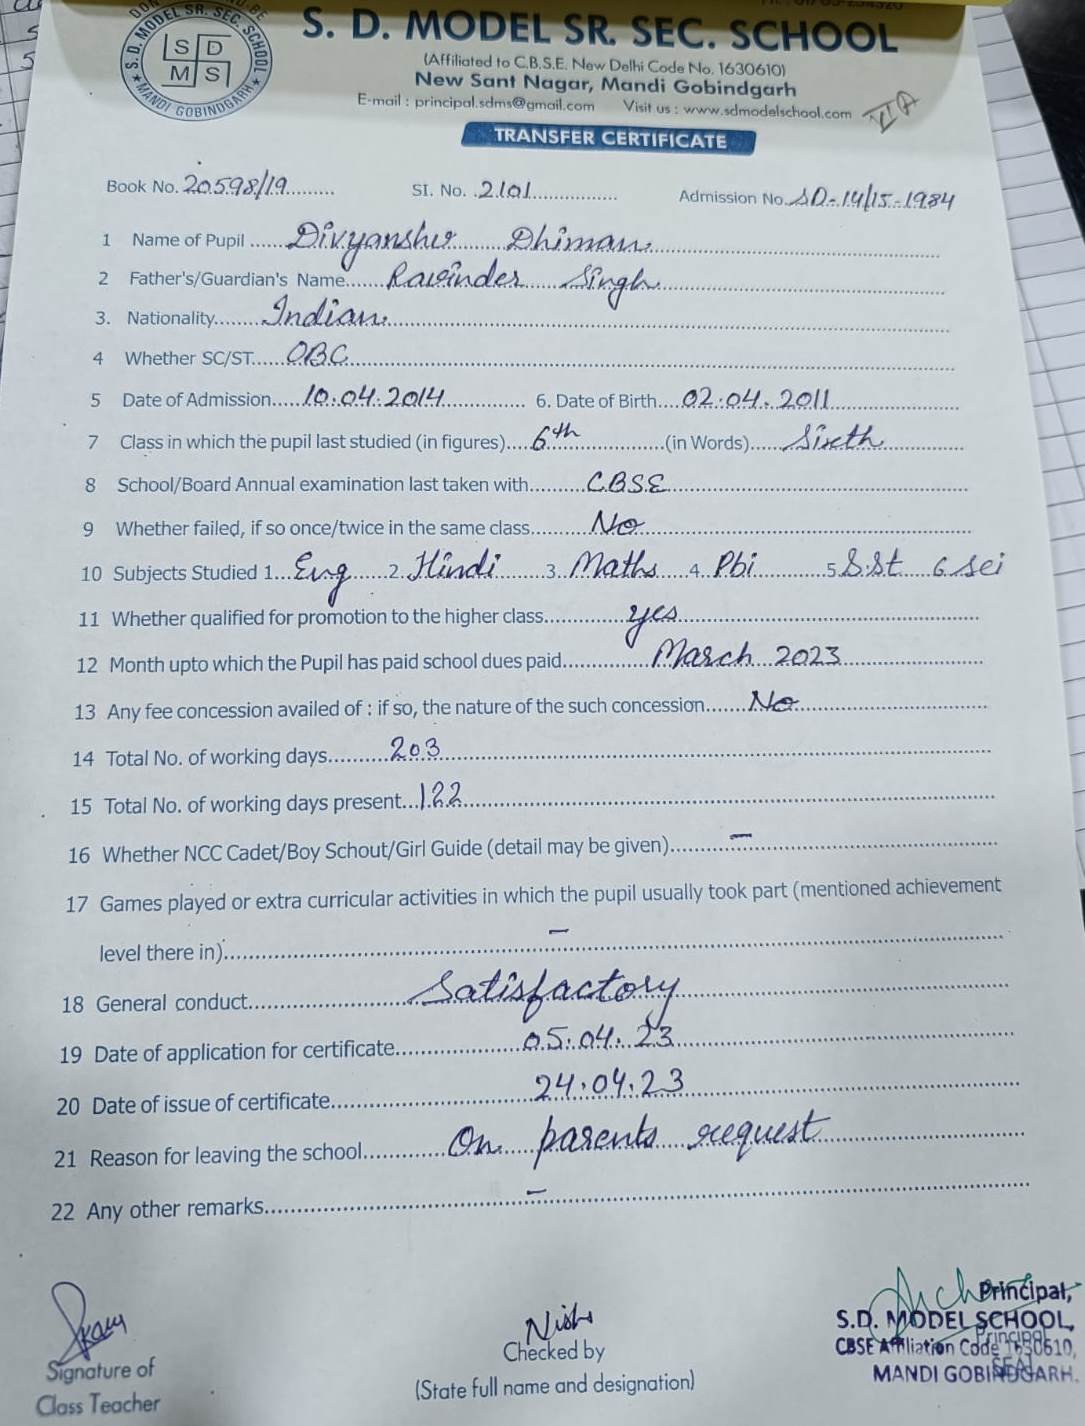 S. D. MODEL SR. SEC. SCHOOL
S. D. MODEL SR. SEC. SCHOOL
MANDI GOBINDGARH
S D
M S
(Affiliated to C.B.S.E. New Delhi Code No. 1630610)
New Sant Nagar, Mandi Gobindgarh
E-mail : principal.sdms@gmail.com Visit us : www.sdmodelschool.com
VI A
TRANSFER CERTIFICATE
Book No. 20598/19 SI. No. 2101 Admission No. SD-14/15-1984
1 Name of Pupil Divyanshu Dhiman
2 Father's/Guardian's Name Ravinder Singh
3. Nationality Indian
4 Whether SC/ST OBC
5 Date of Admission 10.04.2014 6. Date of Birth 02.04.2011
7 Class in which the pupil last studied (in figures) 6th (in Words) Sixth
8 School/Board Annual examination last taken with C.B.S.E
9 Whether failed, if so once/twice in the same class No
10 Subjects Studied 1. Eng 2. Hindi 3. Maths 4. Pbi 5. S.St 6. sci
11 Whether qualified for promotion to the higher class yes
12 Month upto which the Pupil has paid school dues paid March 2023
13 Any fee concession availed of : if so, the nature of the such concession No
14 Total No. of working days 203
15 Total No. of working days present 122
16 Whether NCC Cadet/Boy Schout/Girl Guide (detail may be given) —
17 Games played or extra curricular activities in which the pupil usually took part (mentioned achievement
level there in) —
18 General conduct Satisfactory
19 Date of application for certificate 05.04.23
20 Date of issue of certificate 24.04.23
21 Reason for leaving the school On parents request
22 Any other remarks —
Principal,
S.D. MODEL SCHOOL,
CBSE Affiliation Code 1630610,
MANDI GOBINDGARH.
Principal
SEAL
Nisha
Signature of
Class Teacher
Checked by
(State full name and designation)